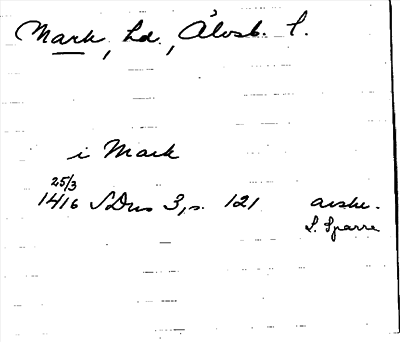 Mark, hd., Älvsb. l.
i Mark
25/3
1416 SDns 3, s. 121 avskr.
L. Sparre